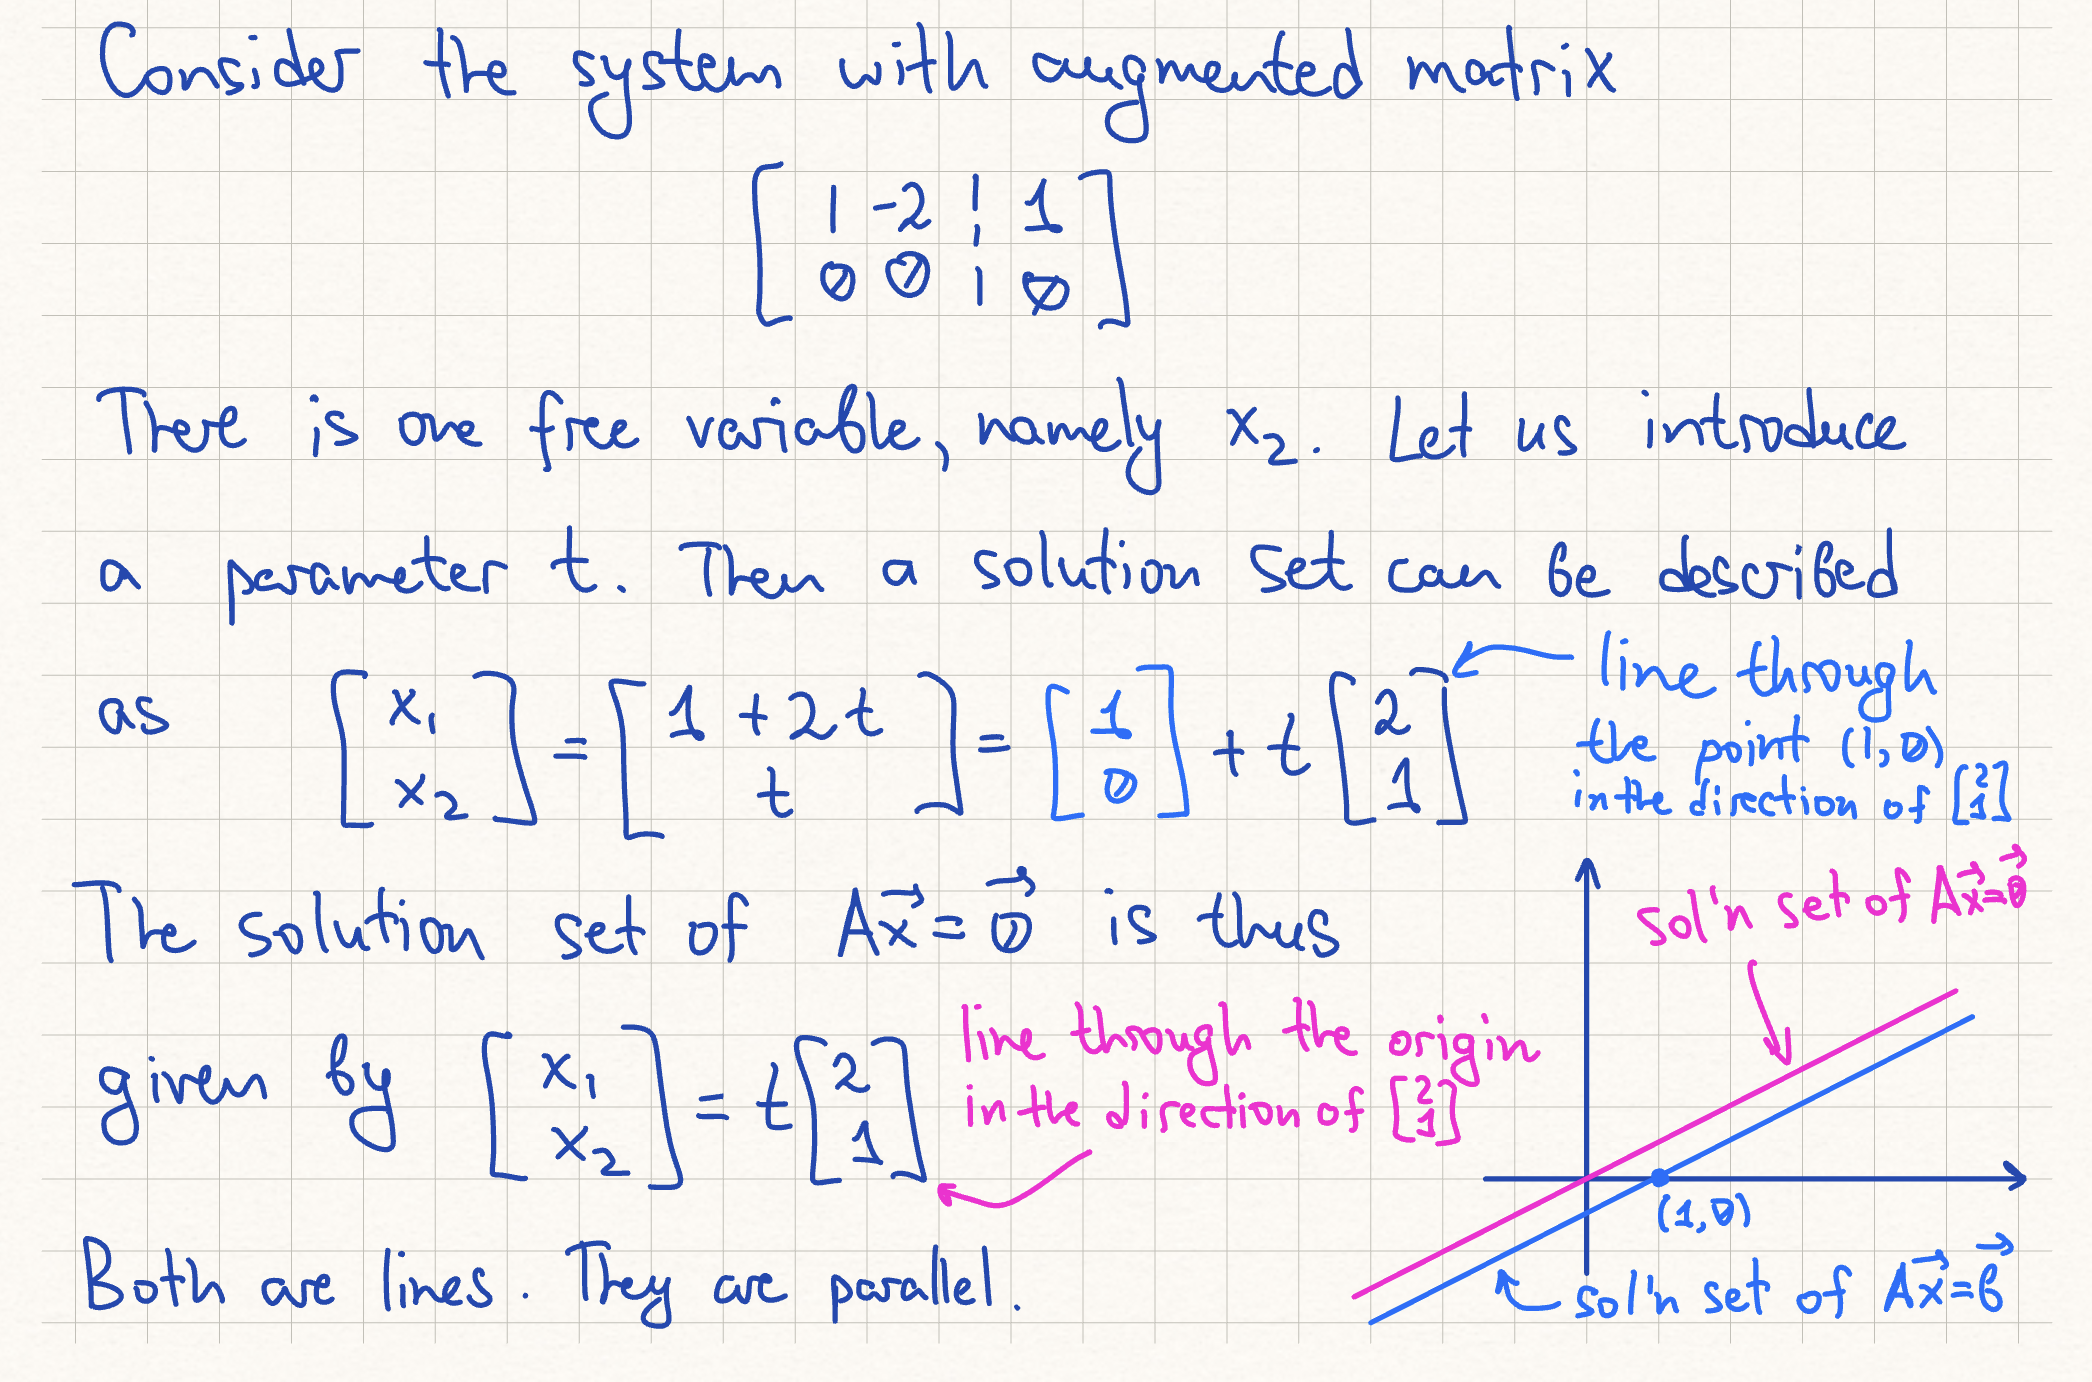 Consider the system with augmented matrix
[ 1 -2 | 1 ]
[ 0 0 | 0 ]
There is one free variable, namely x₂. Let us introduce
a parameter t. Then a solution set can be described
as [x₁ x₂] = [1 + 2t t] = [1 0] + t [2 1]
line through
the point (1,0)
in the direction of [2 1]
The solution set of Ax⃗ = 0⃗ is thus
given by [x₁ x₂] = t [2 1]
line through the origin
in the direction of [2 1]
Both are lines. They are parallel.
sol'n set of Ax⃗=0⃗
(1,0)
sol'n set of Ax⃗=b⃗